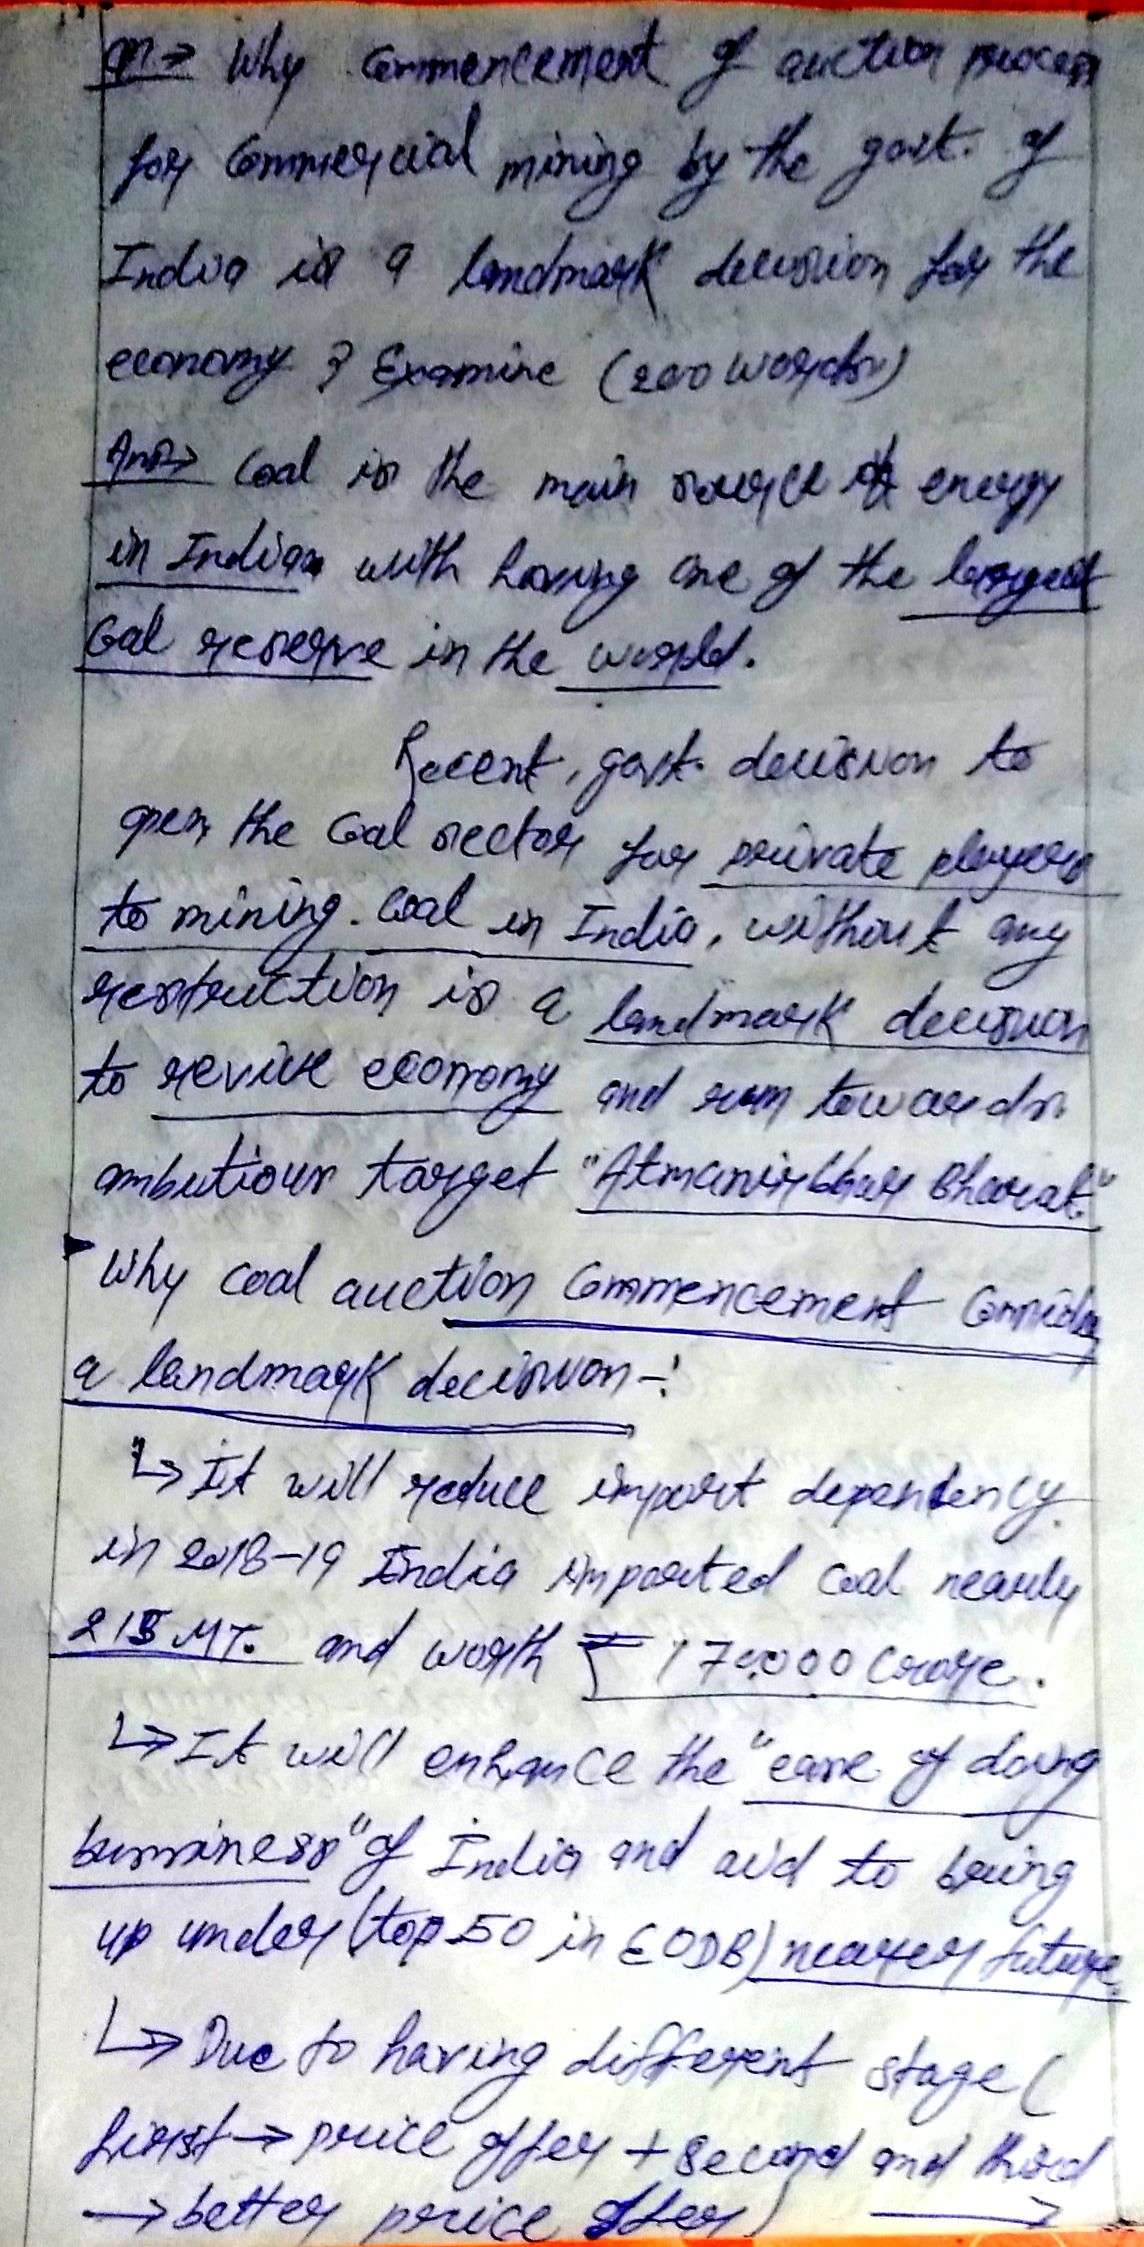 Qn→ Why Commencement of auction process
for Commercial mining by the govt. of
India is a landmark decision for the
economy ? Examine (200 words)
Ans→ Coal is the main source of energy
in India with having one of the largest
Coal reserve in the world.
Recent, govt. decision to
open the Coal sector for private players
to mining. Coal in India, without any
restruction is a landmark decision
to revive economy and run towards
ambitious target "Atmanirbhar Bharat."
Why coal auction Commencement Consider
a landmark decision -:
↳ It will reduce import dependency.
in 2018-19 India imported coal nearly
215 MT. and worth ₹ 170,000 Crore.
↳ It will enhance the "ease of doing
business" of India and aid to bring
up under (top 50 in EODB) nearer future.
↳ Due to having different stage (
first → price offer + second and third
→ better price offer) →